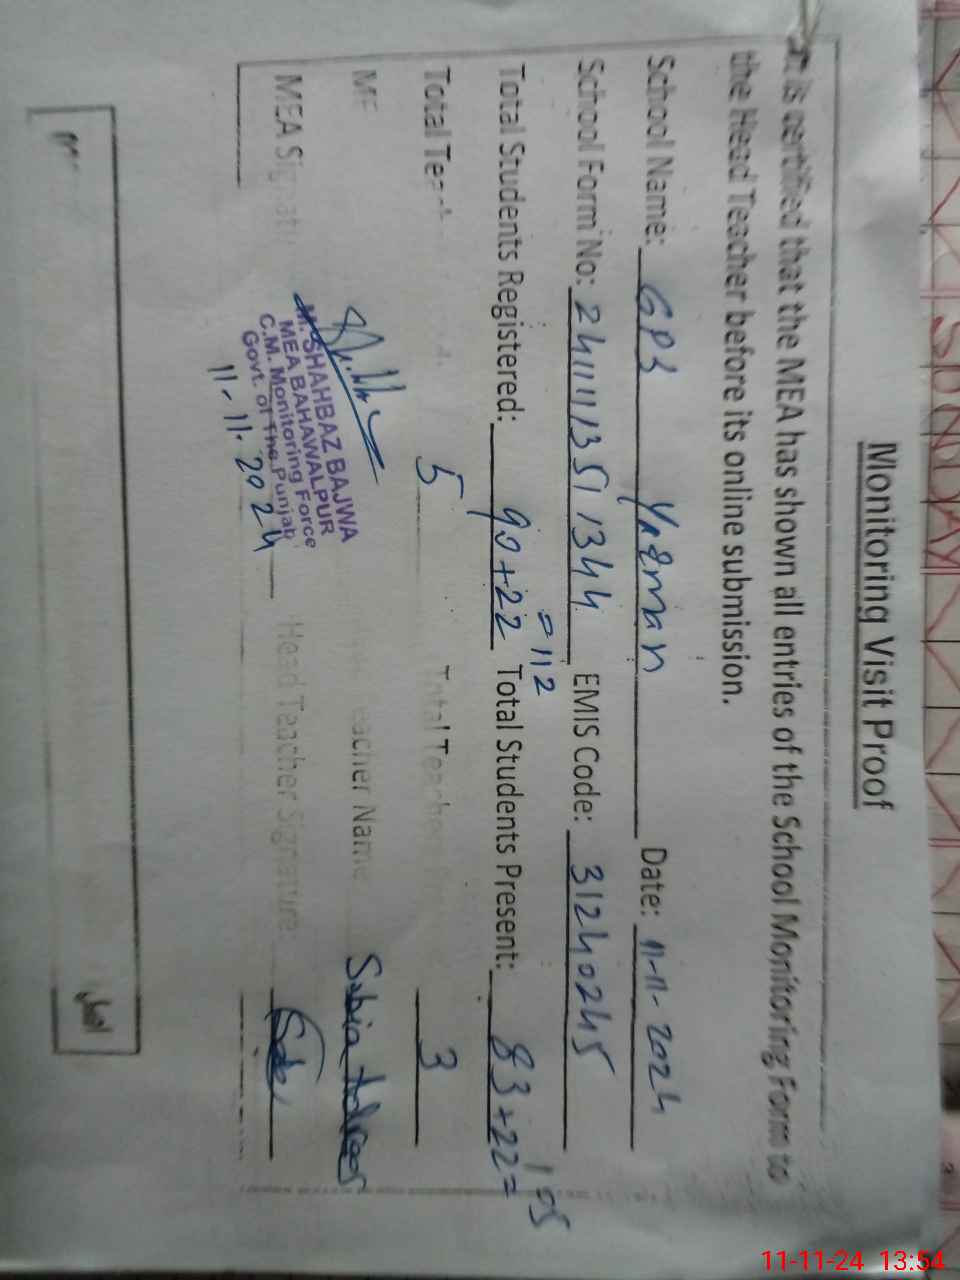 Monitoring Visit Proof
is certified that the MEA has shown all entries of the School Monitoring Form to
the Head Teacher before its online submission.
School Name: GPS Yazman Date: 11-11-2024
School Form No: 2411113511344 EMIS Code: 31240245
Total Students Registered: 90+22 =112 Total Students Present: 83+22= 105
Total 5 Total 3
Name Sabia
MEA Head Teacher Signature:
M. SHAHBAZ BAJWA
MEA BAHAWALPUR
C.M. Monitoring Force
Govt. of The Punjab
11-11-2024
11-11-24 13:54